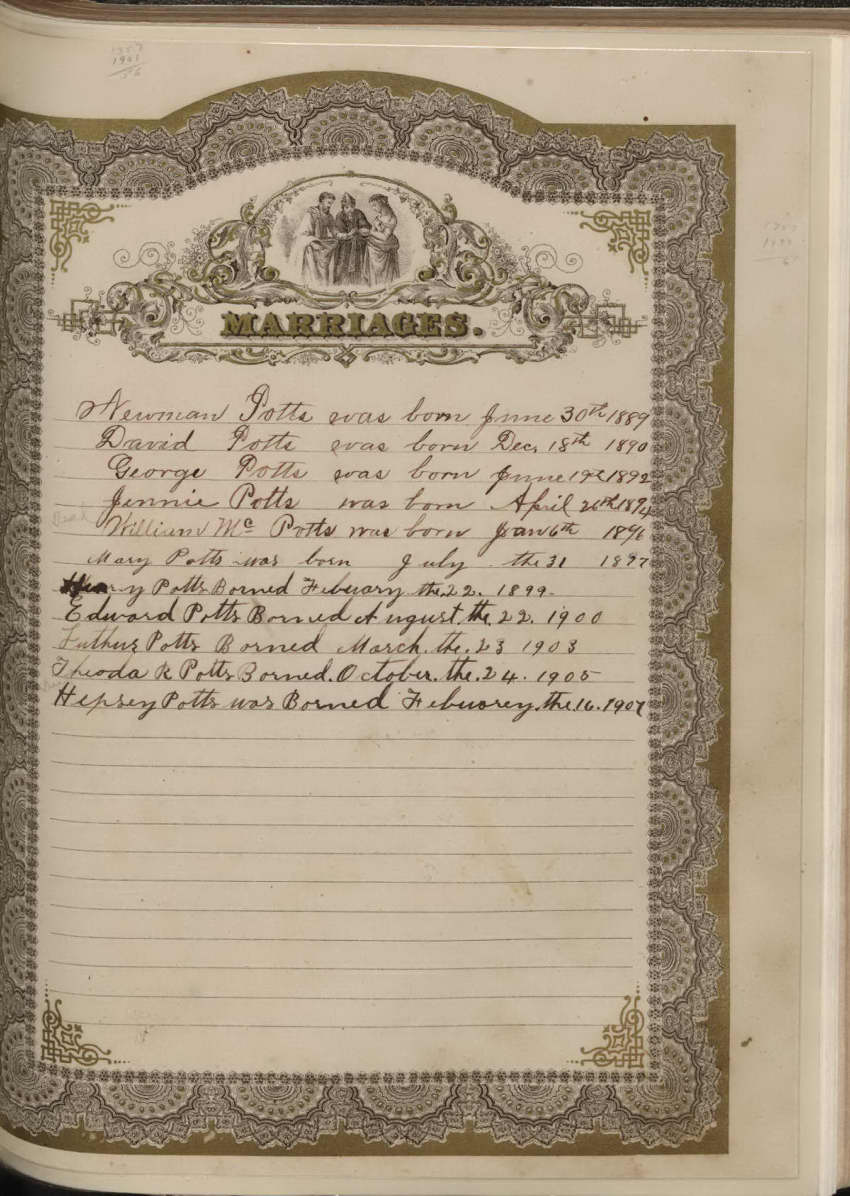 1901
MARRIAGES.
Newman Potts was born June 30th 1889
David Potts was born Dec, 18th 1890
George Potts was born June 19th 1892
Jennie Potts was born April 26th 1894
Dead
William Mc Potts was born Jan 6th 1896
Mary Potts was born July the 31 1897
Henry Potts Borned Febuary the 22. 1899
Edward Potts Borned August. the, 22. 1900
Potts Borned March. the. 23 1903
Theoda R Potts Borned. October. the. 24. 1905
Hepsey Potts was Borned Febuarey. the. 16. 1907